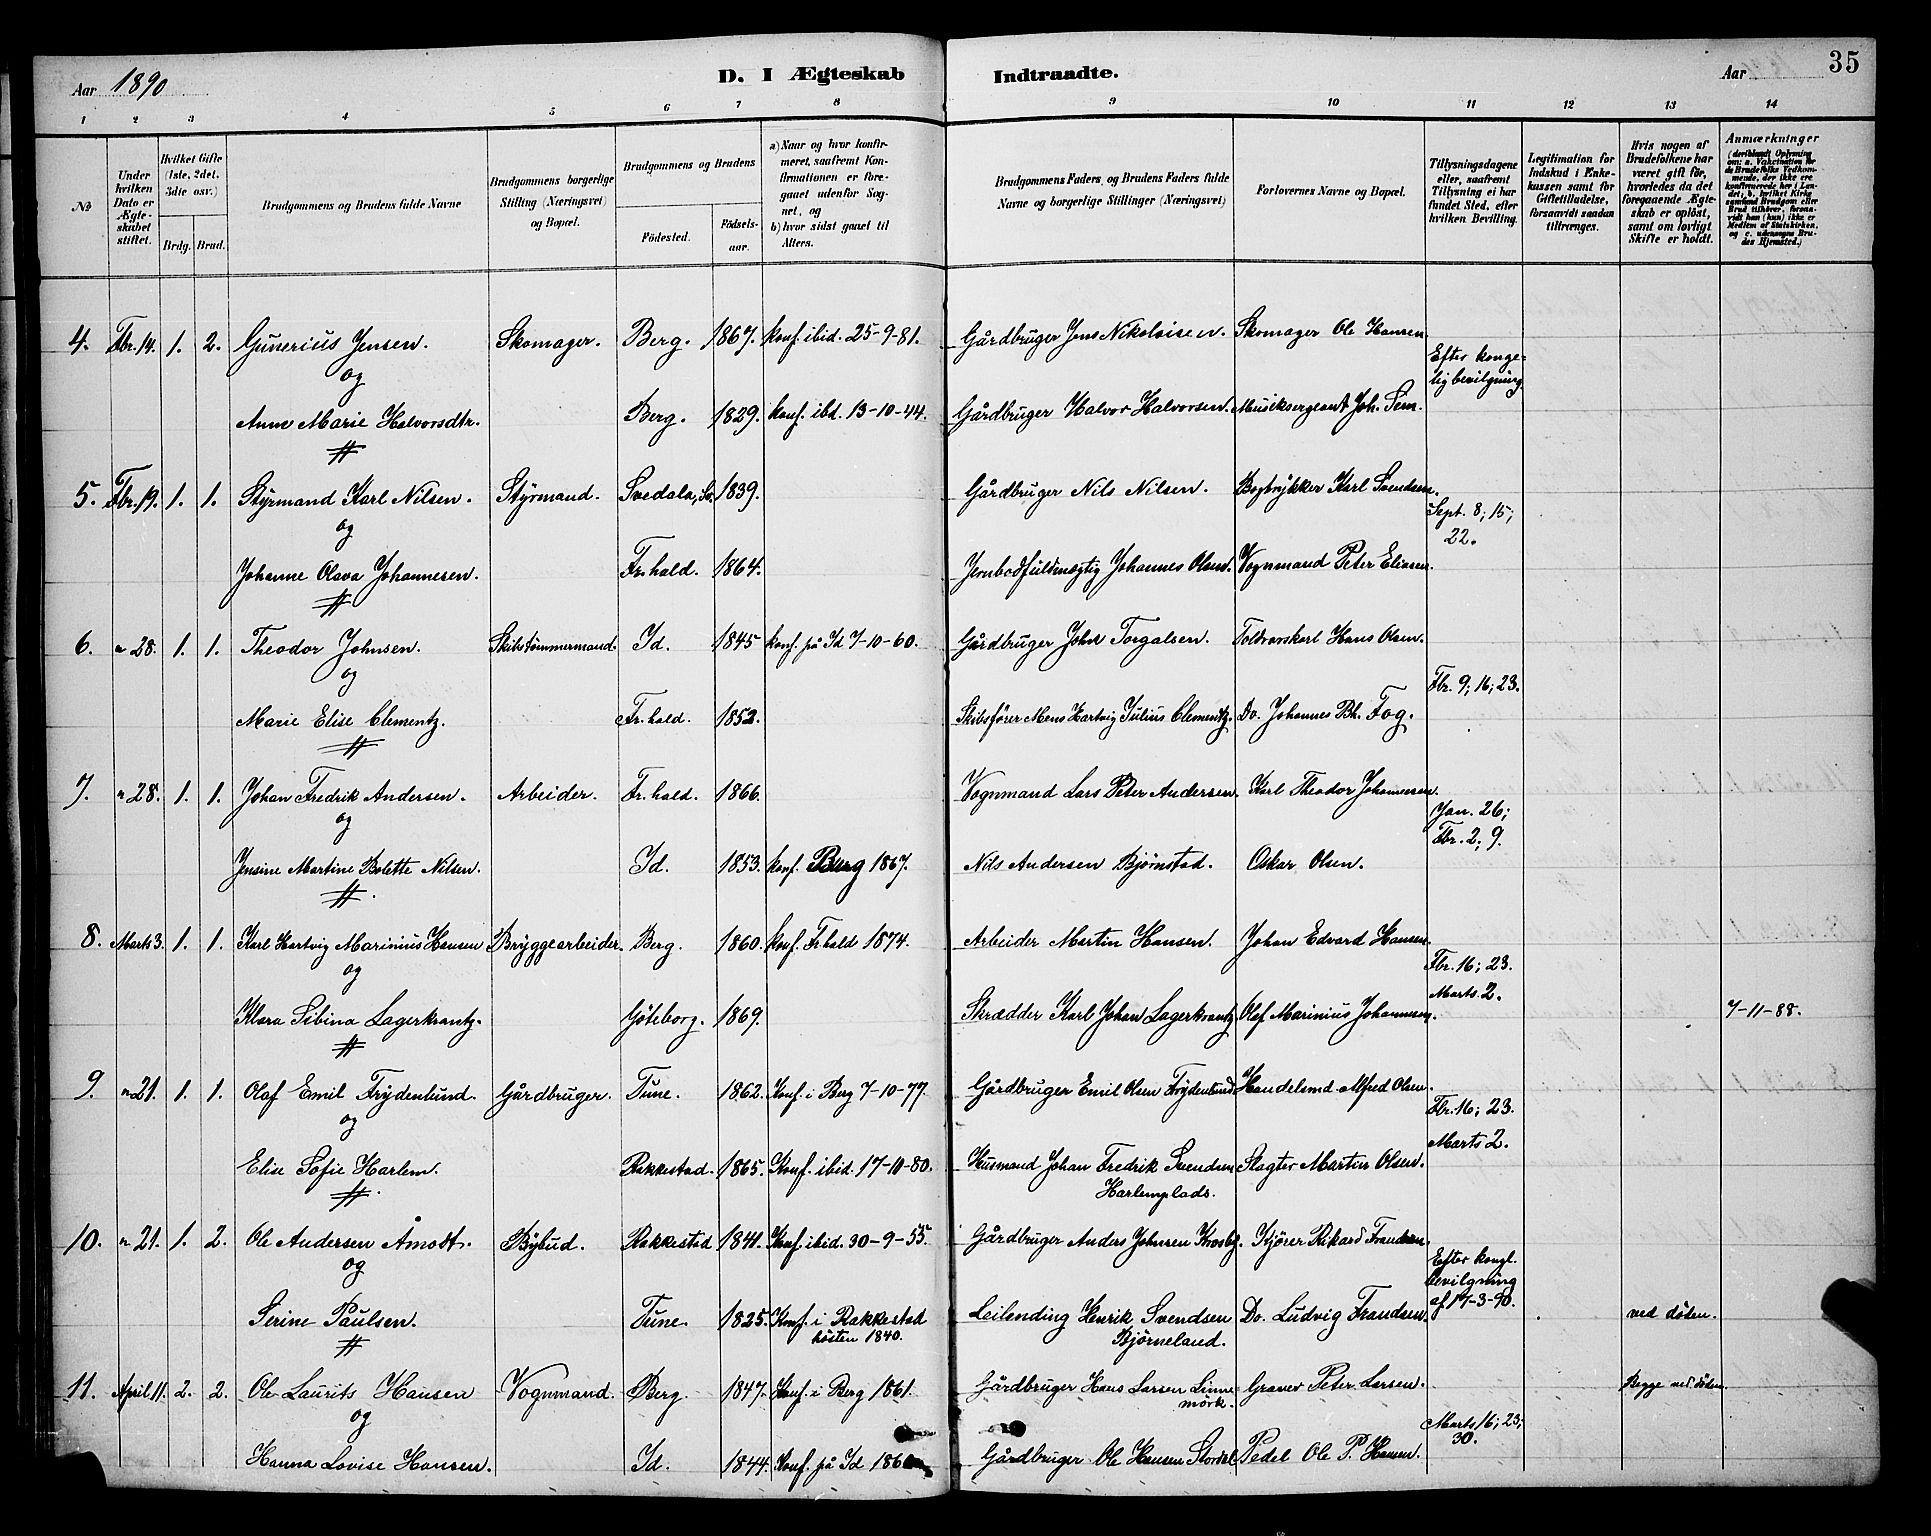 Aar 1890
D. I Ægteskab Indtraadte.
Aar
35
1 2 3 4 5 6 7 8 9 10 11 12 13 14
№
Under hvilken Dato er Ægteskabet stiftet.
Hvilket Gifte (1ste, 2det, 3die osv.)
Brdg. Brud.
Brudgommens og Brudens fulde Navne
Brudgommens borgerlige Stilling (Næringsvei) og Bopæl.
Brudgommens og Brudens
Födested.
Födsels-aar.
a) Naar og hvor konfirmeret, saafremt Konfirmationen er foregaaet udenfor Sognet, og
b) hvor sidst gaaet til Alters.
Brudgommens Faders, og Brudens Faders fulde Navne og borgerlige Stillinger (Næringsvei)
Forlovernes Navne og Bopæl.
Tillysningsdagene eller, saafremt Tillysning ei har fundet Sted, efter hvilken Bevilling.
Legitimation for Indskud i Enkekassen samt for Giftetilladelse, forsaavidt saadan tiltrænges.
Hvis nogen af Brudefolkene har været gift før, hvorledes da det foregaaende Ægteskab er opløst, samt om lovligt Skifte er holdt.
Anmærkninger
(deriblandt Oplysning om: a. Vakcination for de Brudefolks Vedkommende, der ikke ere konfirmerede her i Landet; b. hvilket Kirkesamfund Brudgom eller Brud tilhører, forsaavidt han (hun) ikke er Medlem af Statskirken, og c. udensogns Brudes Hjemsted.)
4. Fbr. 14. 1. 2. Gunerius Jensen. Skomager. Berg. 1867. konf. ibid. 25-9-81. Gårdbruger Jens Nikolaisen. Skomager Ole Hansen
og
Efter kongelig bevilgning
Anne Marie Halvorsdtr. Berg. 1829. konf. ibd. 13-10-44. Gårdbruger Halvor Halvorsen. Musiksergeant Joh. Sem.
5. Fbr. 19. 1. 1. Styrmand Karl Nilsen. Styrmand. Svedala, Sv. 1839. Gårdbruger Nils Nilsen. Bogtrykker Karl Svendsen.
og
Sept. 8; 15; 22.
Johanne Olava Johannesen. Fr.hald. 1864. Jernbadfuldmægtig Johannes Olsen. Vognmand Peter Eliasen.
6. " 28. 1. 1. Theodor Johnsen. Skibstömmermand. Id. 1845 konf. på Id 7-10-60. Gårdbruger John Torgalsen. Toldvorskarl Hans Olsen.
og
Fbr. 9; 16; 23.
Marie Elise Clementz. Fr.hald. 1852. Skibsfører Mens Hartvig Julius Clementz. Do. Johannes Bh. Fog.
7. " 28. 1. 1. Johan Fredrik Andersen. Arbeider. Fr.hald. 1866. Vognmand Lars Peter Andersen. Karl Theodor Johannessen
og
Jan. 26; Fbr. 2; 9.
Jensine Martine Bolette Nilsen. Id. 1853. konf. Berg 1867. Nils Andersen Bjørnstad. Oskar Olsen.
8. Marts 3. 1. 1. Karl Hartvig Marinius Hansen Bryggearbeider. Berg. 1860. konf. Fr.hald 1874. Arbeider Martin Hansen. Johan Edvard Hansen.
og
Fbr. 16; 23. Marts 2.
Klara Sibina Lagerkrantz. Göteborg. 1869. Skrædder Karl Johan Lagerkrantz Olaf Marinius Johannesen. 7-11-88.
9. " 21. 1. 1. Olaf Emil Frydenlund. Gårdbruger. Tune. 1862. Konf. i Berg 7-10-77. Gårdbruger Emil Olsen Frydenlund Handelsmd Alfred Olsen.
og
Fbr. 16; 23. Marts 2.
Elise Sofie Harlem. Rakkestad. 1865. Konf. ibid. 17-10-80. Husmand Johan Fredrik Svendsen Slagter Martin Olsen.
Harlemplads.
10. " 21. 1. 2. Ole Andersen Åmodt. Bybud. Rakkestad 1841. Konf. ibid. 30-9-55. Gårdbruger Anders Johnsen Krosby. Kjører Rikard Frandsen.
og
Efter kongl. bevilgning af 17-3-90.
Serine Paulsen. Tune. 1825. Konf. i Rakkestad høsten 1840. Leilending Henrik Svendsen Do. Ludvig Frandsen. ved døden.
Björneland.
11. April 11. 2. 2. Ole Laurits Hansen Vognmand. Berg. 1847. Konf. i Berg 1861. Gårdbruger Hans Larsen Linnemörk. Graver Peter Larsen. Begge ved døden.
og
Marts 16; 23; 30.
Hanna Lovise Hansen. Id. 1844. Konf. på Id Gårdbruger Ole Hansen Stordal Pedel Ole P. Hansen.